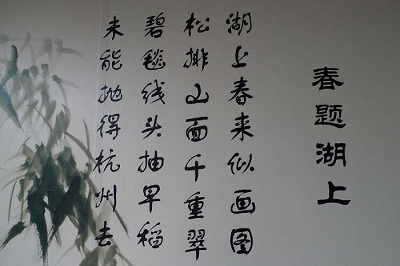 春题湖上
湖上春来似画图
松排山面千重翠
碧毯线头抽早稻
未能抛得杭州去